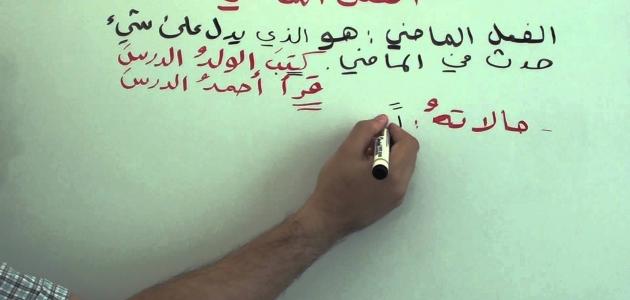 الفعل الماضي
الفعل الماضي : هو الذي يدل على شيء
حدث في الماضي . كَتَبَ الولدُ الدرسَ
قرأ أحمدُ الدرسَ
- حالاتهُ :